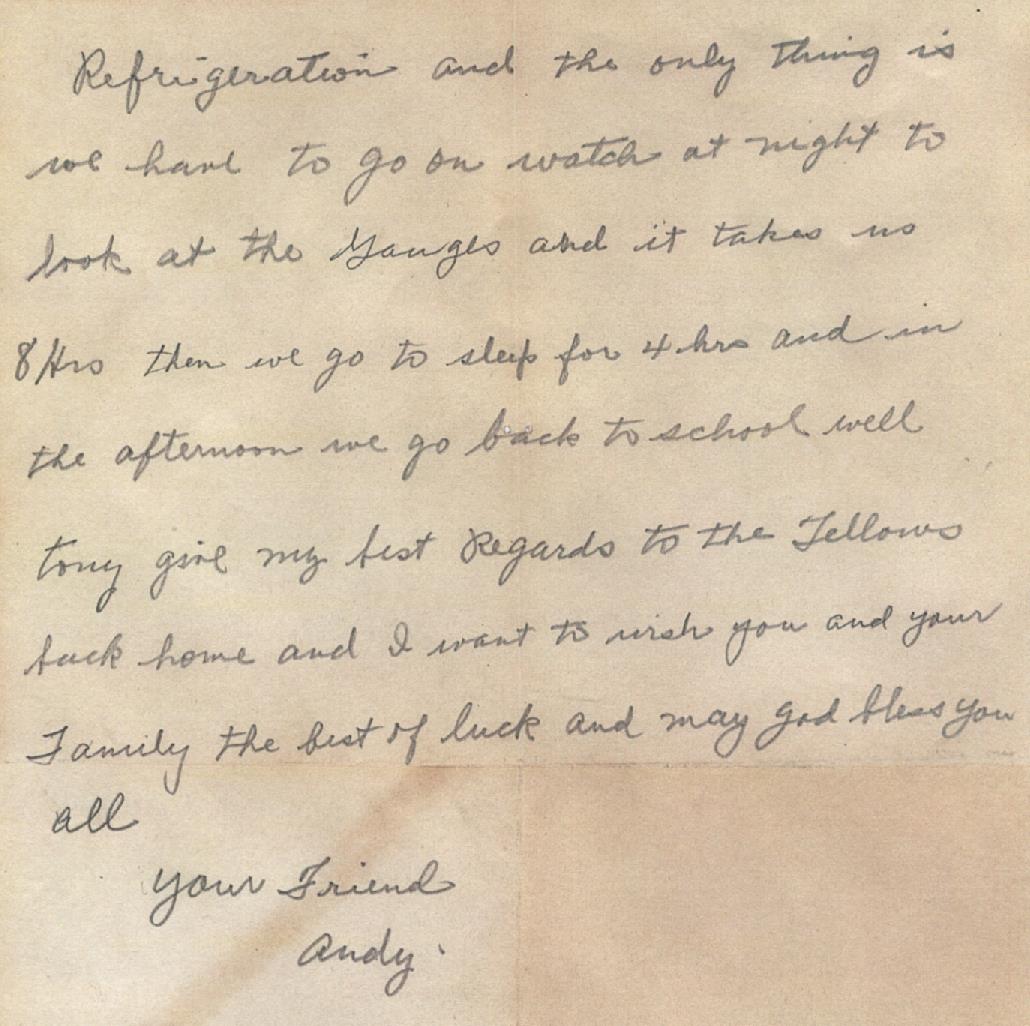 Refrigeration and the only thing is
we have to go on watch at night to
look at the Gauges and it takes us
8 Hrs then we go to sleep for 4 hrs and in
the afternoon we go back to school well
tony give my best Regards to the Fellows
back home and I want to wish you and your
Family the best of luck and may god bless you
all
your Friend
Andy.